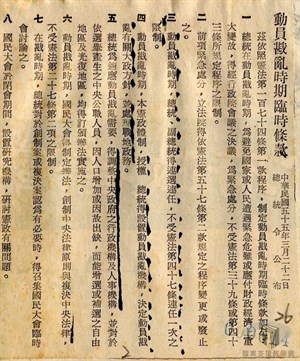 動員戡亂時期臨時條款
中華民國五十五年三月二十二日
總統令公布
茲依照憲法第一百七十四條第一款程序，制定動員戡亂時期臨時條款如左：
一　總統在動員戡亂時期，為避免國家或人民遭遇緊急危難或應付財政經濟上重
大變故，得經行政院會議之決議，為緊急處分，不受憲法第三十九條或第四十
三條所規定程序之限制。
二　前項緊急處分，立法院得依憲法第五十七條第二款規定之程序變更或廢止
之。
三　動員戡亂時期，總統副總統得連選連任，不受憲法第四十七條連任一次之
限制。
四　動員戡亂時期，本憲政體制，授權總統得設置動員戡亂機構，決定動員戡
亂有關大政方針，並處理戰地政務。
五　總統為適應動員戡亂需要，得調整中央政府之行政機構及人事機構，並對於
依選舉產生之中央公職人員，因人口增加或因故出缺，而能增選或補選之自由
地區及光復地區，均得訂頒辦法實施之。
六　動員戡亂時期，國民大會得制定辦法，創制中央法律原則與複決中央法律，
不受憲法第二十七條第二項之限制。
七　在戡亂時期，總統對於創制案或複決案認為有必要時，得召集國民大會臨時
會討論之。
八　國民大會於閉會期間，設置研究機構，研討憲政有關問題。
26